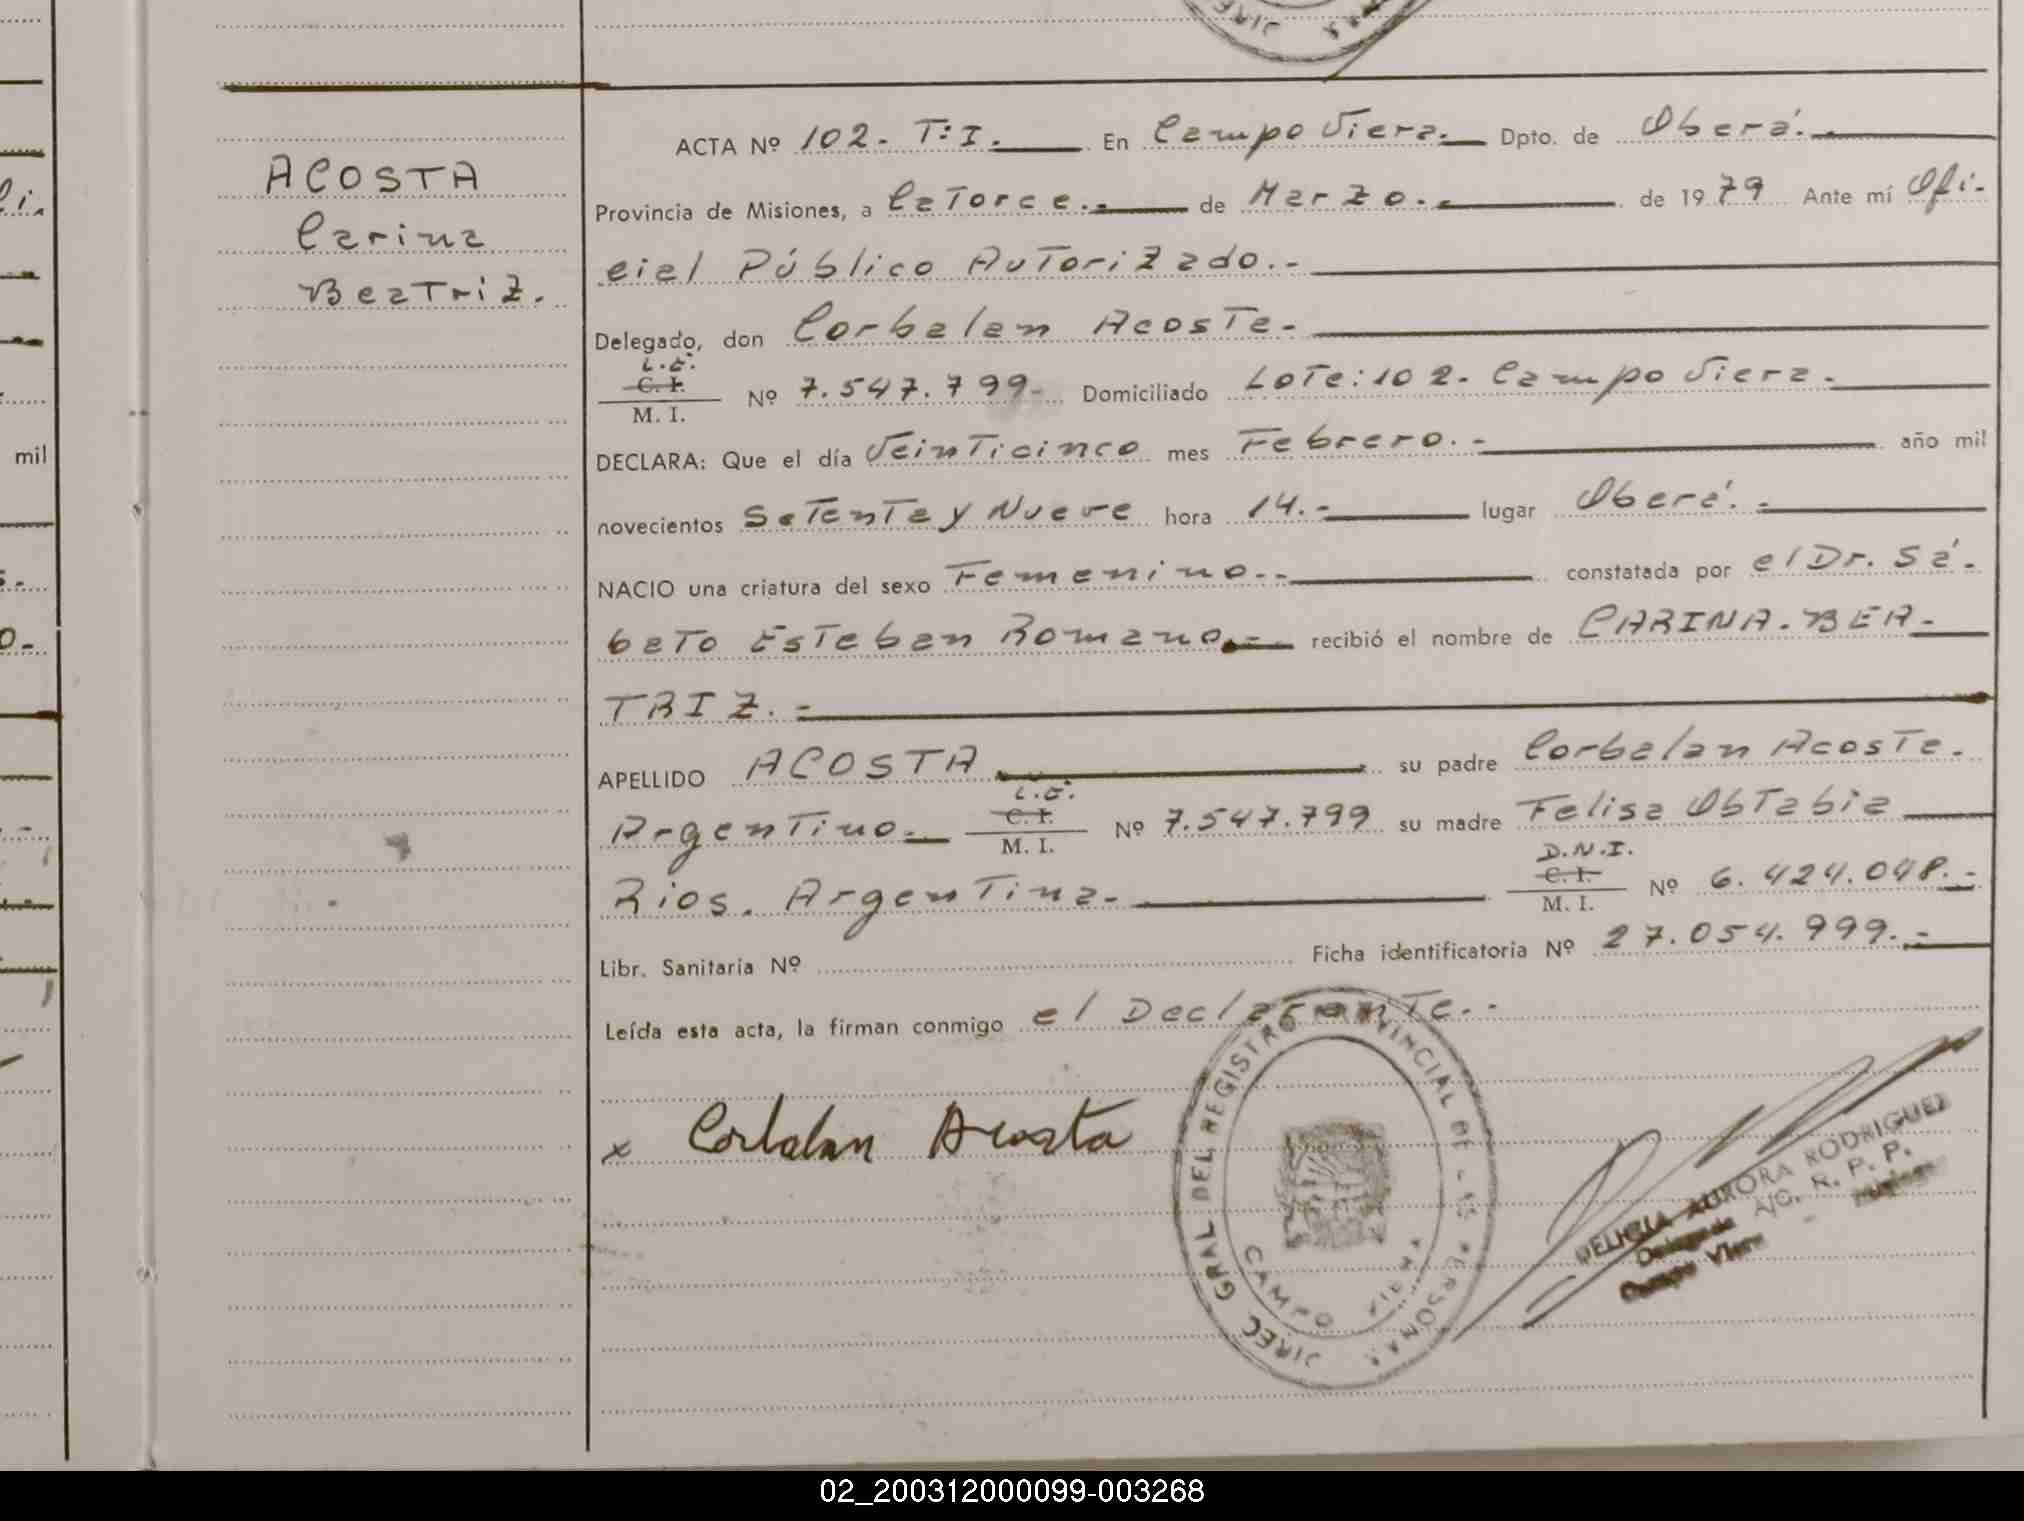 ACTA Nº 102.- T: I.- En Campo Viera.- Dpto. de Oberá.-
ACOSTA
Carina
Beatriz.
Provincia de Misiones, a Catorce.- de Marzo.- de 1979 Ante mí Ofi-
cial Público Autorizado.-
Delegado, don Corbalan Acosta-
L.E.
C. I.
M. I.
Nº 7.547.799- Domiciliado Lote: 102- Campo Viera-
DECLARA: Que el día Veinticinco mes Febrero.- año mil
novecientos Setenta y Nueve hora 14.- lugar Oberá.-
NACIO una criatura del sexo Femenino.- constatada por el Dr. Sá-
bato Esteban Romano.- recibió el nombre de CARINA-BEA-
TRIZ.-
APELLIDO ACOSTA su padre Corbalan Acosta.
Argentino.- L.E. C. I. M. I. Nº 7.547.799 su madre Felisa Obtabia
Rios. Argentina- D.N.I. C. I. M. I. Nº 6.424.048.-
Libr. Sanitaria Nº Ficha identificatoria Nº 27.054.999.-
Leída esta acta, la firman conmigo el Declarante.-
x Corbalan Acosta
DIREC GRAL DEL REGISTRO PROVINCIAL DE LAS PERSONAS
CAMPO VIERA
DELICIA AURORA RODRIGUEZ
Delegada A/C. R. P. P.
Campo Viera Misiones
mil
02_200312000099-003268